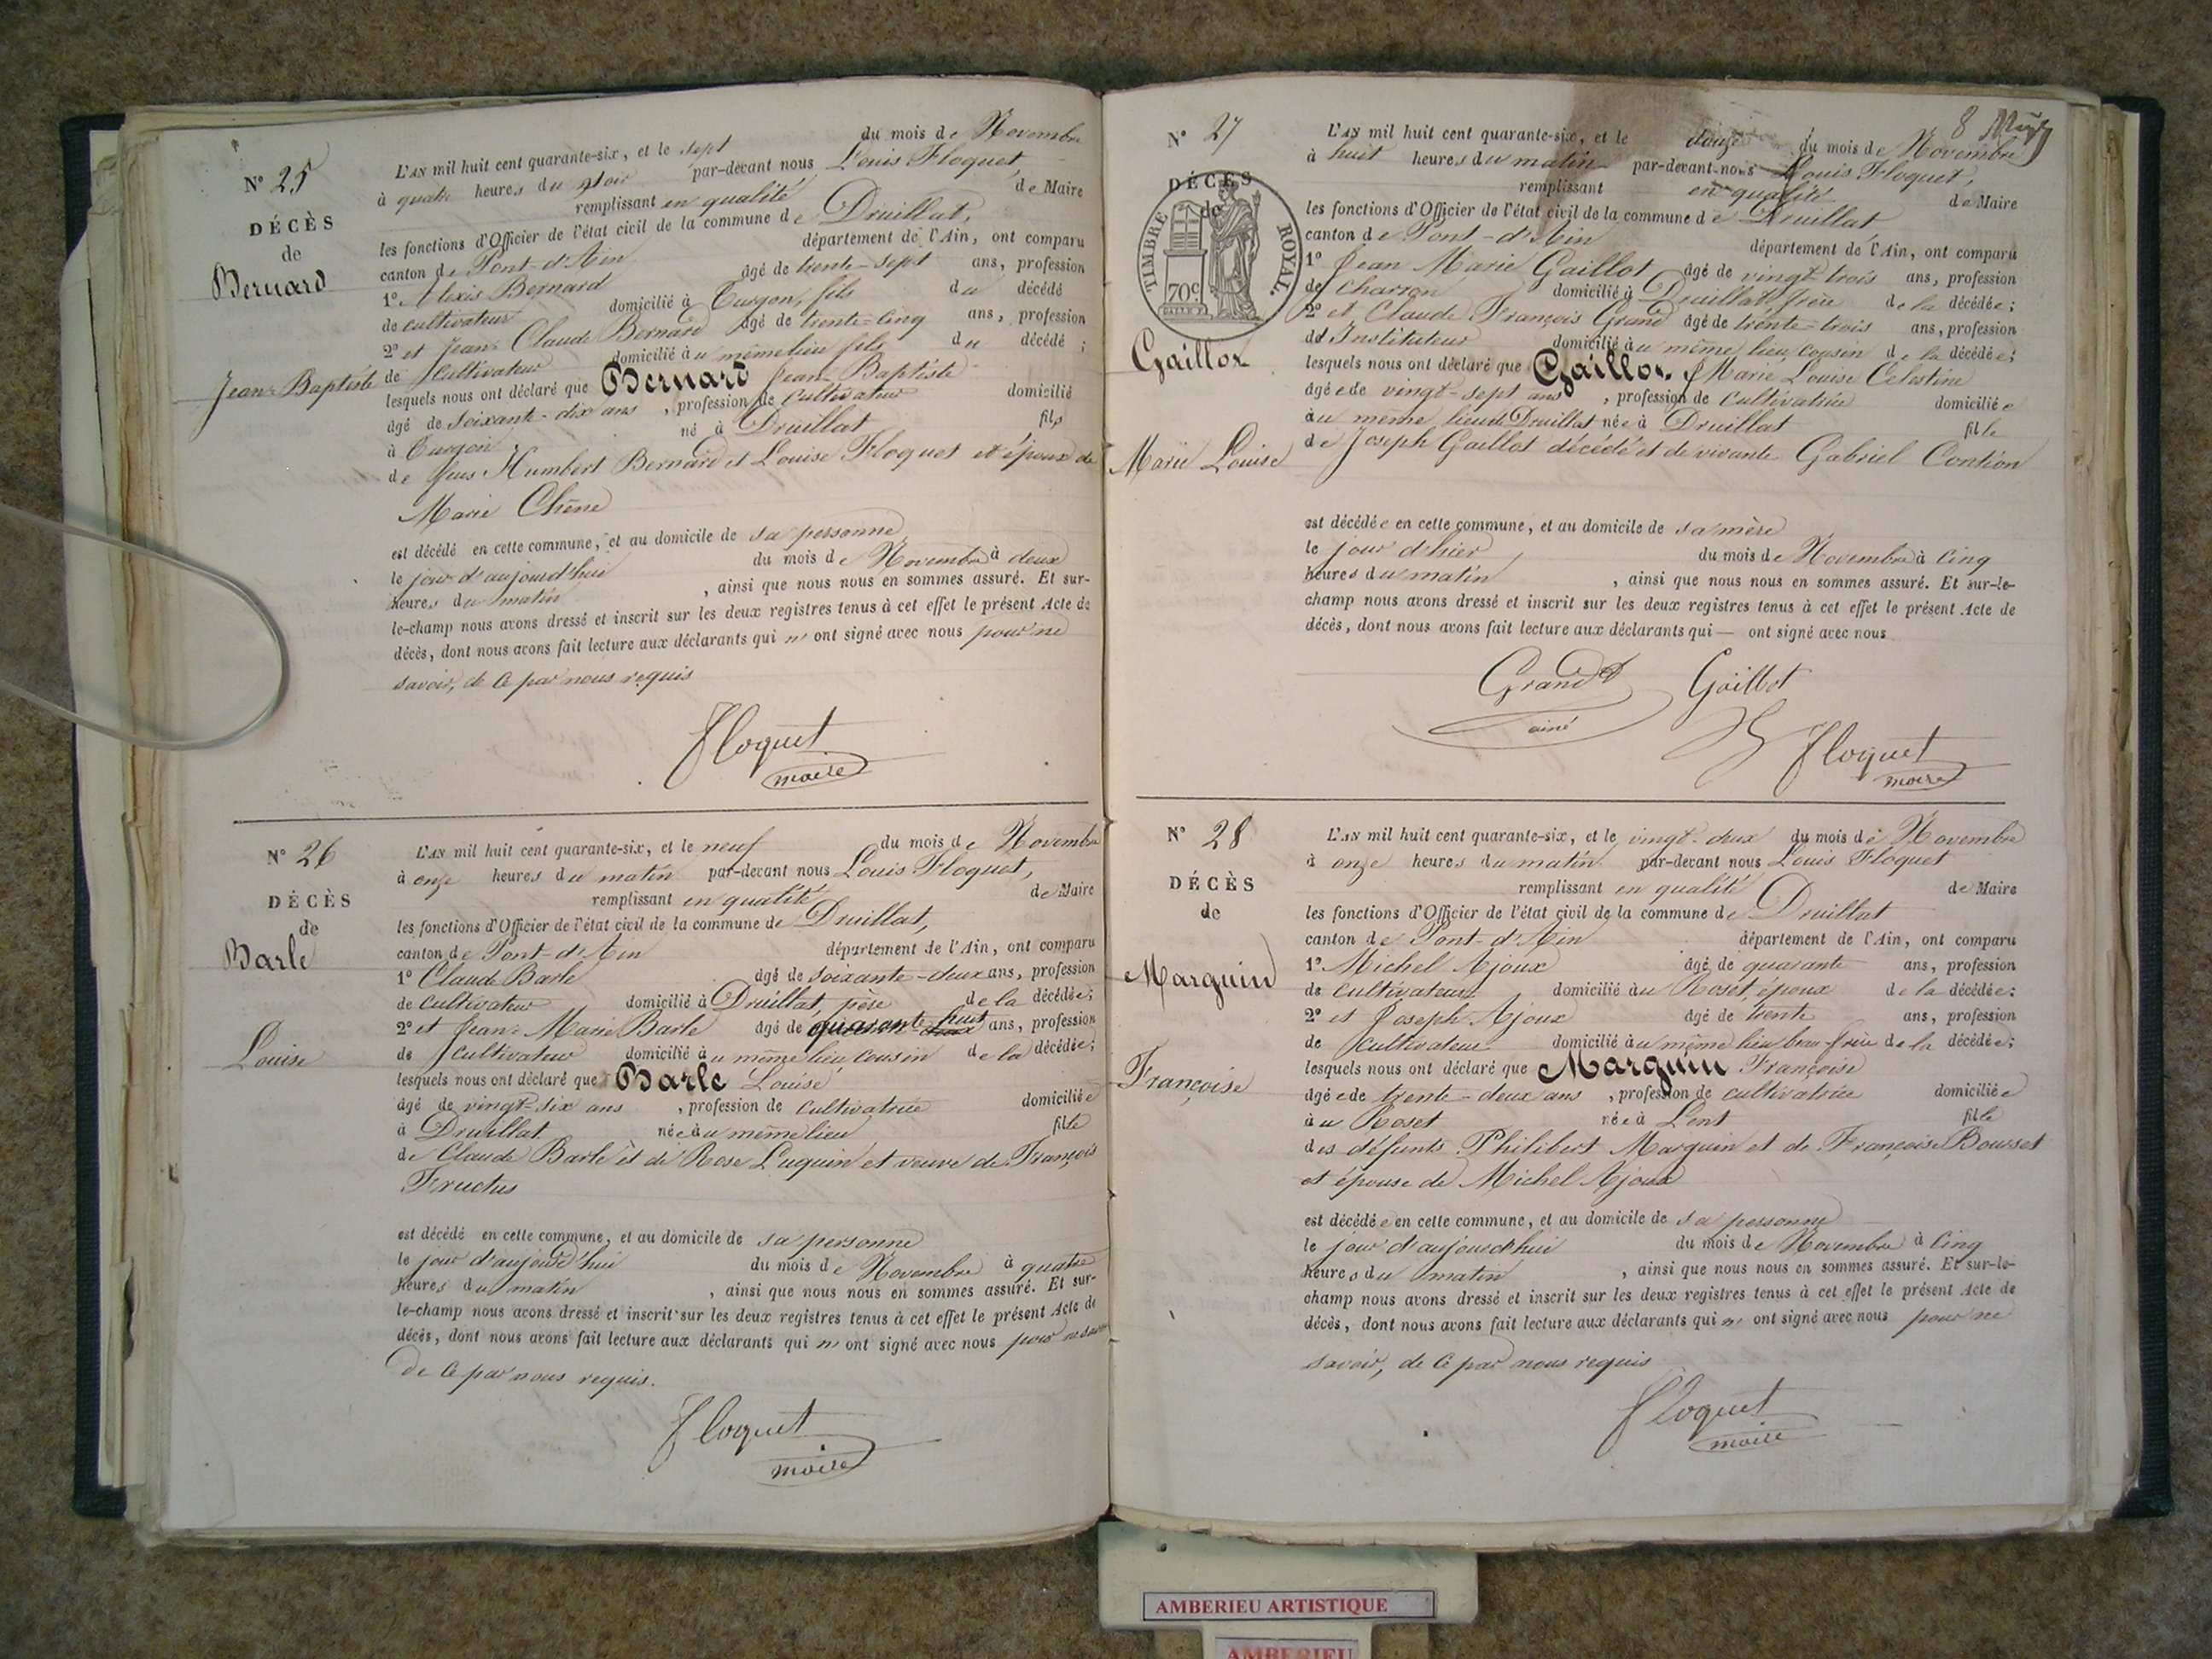 N° 25
DÉCÈS
de
Bernard
Jean-Baptiste
L'AN mil huit cent quarante-six, et le sept du mois de Novembre
à quatre heures du soir par-devant nous Louis Floquet,
remplissant en qualité de Maire
les fonctions d'Officier de l'état civil de la commune de Druillat,
canton de Pont-d'Ain département de l'Ain, ont comparu
1° Alexis Bernard âgé de trente-sept ans, profession
de cultivateur domicilié à Turgon, fils du décédé
2° et Jean-Claude Bernard âgé de trente-cinq ans, profession
de cultivateur domicilié au même lieu fils du décédé ;
lesquels nous ont déclaré que Bernard Jean-Baptiste
âgé de soixante-dix ans, profession de cultivateur domicilié
à Turgon né à Druillat fils
de feus Humbert Bernard et Louise Floquet et époux de
Marie Chêne
est décédé en cette commune, et au domicile de sa personne
le jour d'aujourd'hui du mois de Novembre à deux
heures du matin, ainsi que nous nous en sommes assuré. Et sur-
le-champ nous avons dressé et inscrit sur les deux registres tenus à cet effet le présent Acte de
décès, dont nous avons fait lecture aux déclarants qui n'ont signé avec nous pour ne
savoir, de ce par nous requis
Floquet
maire
N° 26
DÉCÈS
de
Barle
Louise
L'AN mil huit cent quarante-six, et le neuf du mois de Novembre
à onze heures du matin par-devant nous Louis Floquet,
remplissant en qualité de Maire
les fonctions d'Officier de l'état civil de la commune de Druillat,
canton de Pont-d'Ain département de l'Ain, ont comparu
1° Claude Barle âgé de soixante-deux ans, profession
de cultivateur domicilié à Druillat, père de la décédée;
2° et Jean-Marie Barle âgé de quarante-huit ans, profession
de cultivateur domicilié au même lieu, cousin de la décédée;
lesquels nous ont déclaré que Barle Louise
âgé de vingt-six ans, profession de cultivatrice domiciliée
à Druillat née au même lieu fille
de Claude Barle et de Rose Luquin et veuve de François
Fructus
est décédé en cette commune, et au domicile de sa personne
le jour d'aujourd'hui du mois de Novembre à quatre
heures du matin, ainsi que nous nous en sommes assuré. Et sur-
le-champ nous avons dressé et inscrit sur les deux registres tenus à cet effet le présent Acte de
décès, dont nous avons fait lecture aux déclarants qui n'ont signé avec nous pour ne savoir
de ce par nous requis.
Floquet
maire
8
N° 27
DÉCÈS
de
TIMBRE ROYAL.
70c
Gaillot
Marie Louise
L'AN mil huit cent quarante-six, et le douze du mois de Novembre
à huit heures du matin par-devant-nous Louis Floquet,
remplissant en qualité de Maire
les fonctions d'Officier de l'état civil de la commune de Druillat
canton de Pont-d'Ain département de l'Ain, ont comparu
1° Jean Marie Gaillot âgé de vingt-trois ans, profession
de Charron domicilié à Druillat, frère de la décédée;
2° et, Claude François Grand âgé de trente-trois ans, profession
d'Instituteur domicilié au même lieu, cousin de la décédée;
lesquels nous ont déclaré que Gaillot Marie Louise Célestine
âgée de vingt-sept ans, profession de cultivatrice domiciliée
au même lieu de Druillat née à Druillat fille
de Joseph Gaillot décédé et de vivante Gabriel Contion
est décédée en cette commune, et au domicile de sa mère
le jour d'hier du mois de Novembre à cinq
heures du matin, ainsi que nous nous en sommes assuré. Et sur-le-
champ nous avons dressé et inscrit sur les deux registres tenus à cet effet le présent Acte de
décès, dont nous avons fait lecture aux déclarants qui — ont signé avec nous
Grand Gaillot
ainé
Floquet
maire
N° 28
DÉCÈS
de
Marguin
Françoise
L'AN mil huit cent quarante-six, et le vingt-deux du mois de Novembre
à onze heures du matin par-devant nous Louis Floquet
remplissant en qualité de Maire
les fonctions d'Officier de l'état civil de la commune de Druillat
canton de Pont-d'Ain département de l'Ain, ont comparu
1° Michel Ajoux âgé de quarante ans, profession
de cultivateur domicilié au Roset, époux de la décédée;
2° et Joseph Ajoux âgé de trente ans, profession
de cultivateur domicilié au même lieu beau-frère de la décédée;
lesquels nous ont déclaré que Marguin Françoise
âgée de trente-deux ans, profession de cultivatrice domiciliée
au Roset née à Lent fille
des défunts Philibert Marguin et de Françoise Bousset
et épouse de Michel Ajoux
est décédée en cette commune, et au domicile de sa personne
le jour d'aujourd'hui du mois de Novembre à cinq
heures du matin, ainsi que nous nous en sommes assuré. Et sur-le-
champ nous avons dressé et inscrit sur les deux registres tenus à cet effet le présent Acte de
décès, dont nous avons fait lecture aux déclarants qui n'ont signé avec nous pour ne
savoir, de ce par nous requis
Floquet
maire
AMBERIEU ARTISTIQUE
AMBERIEU